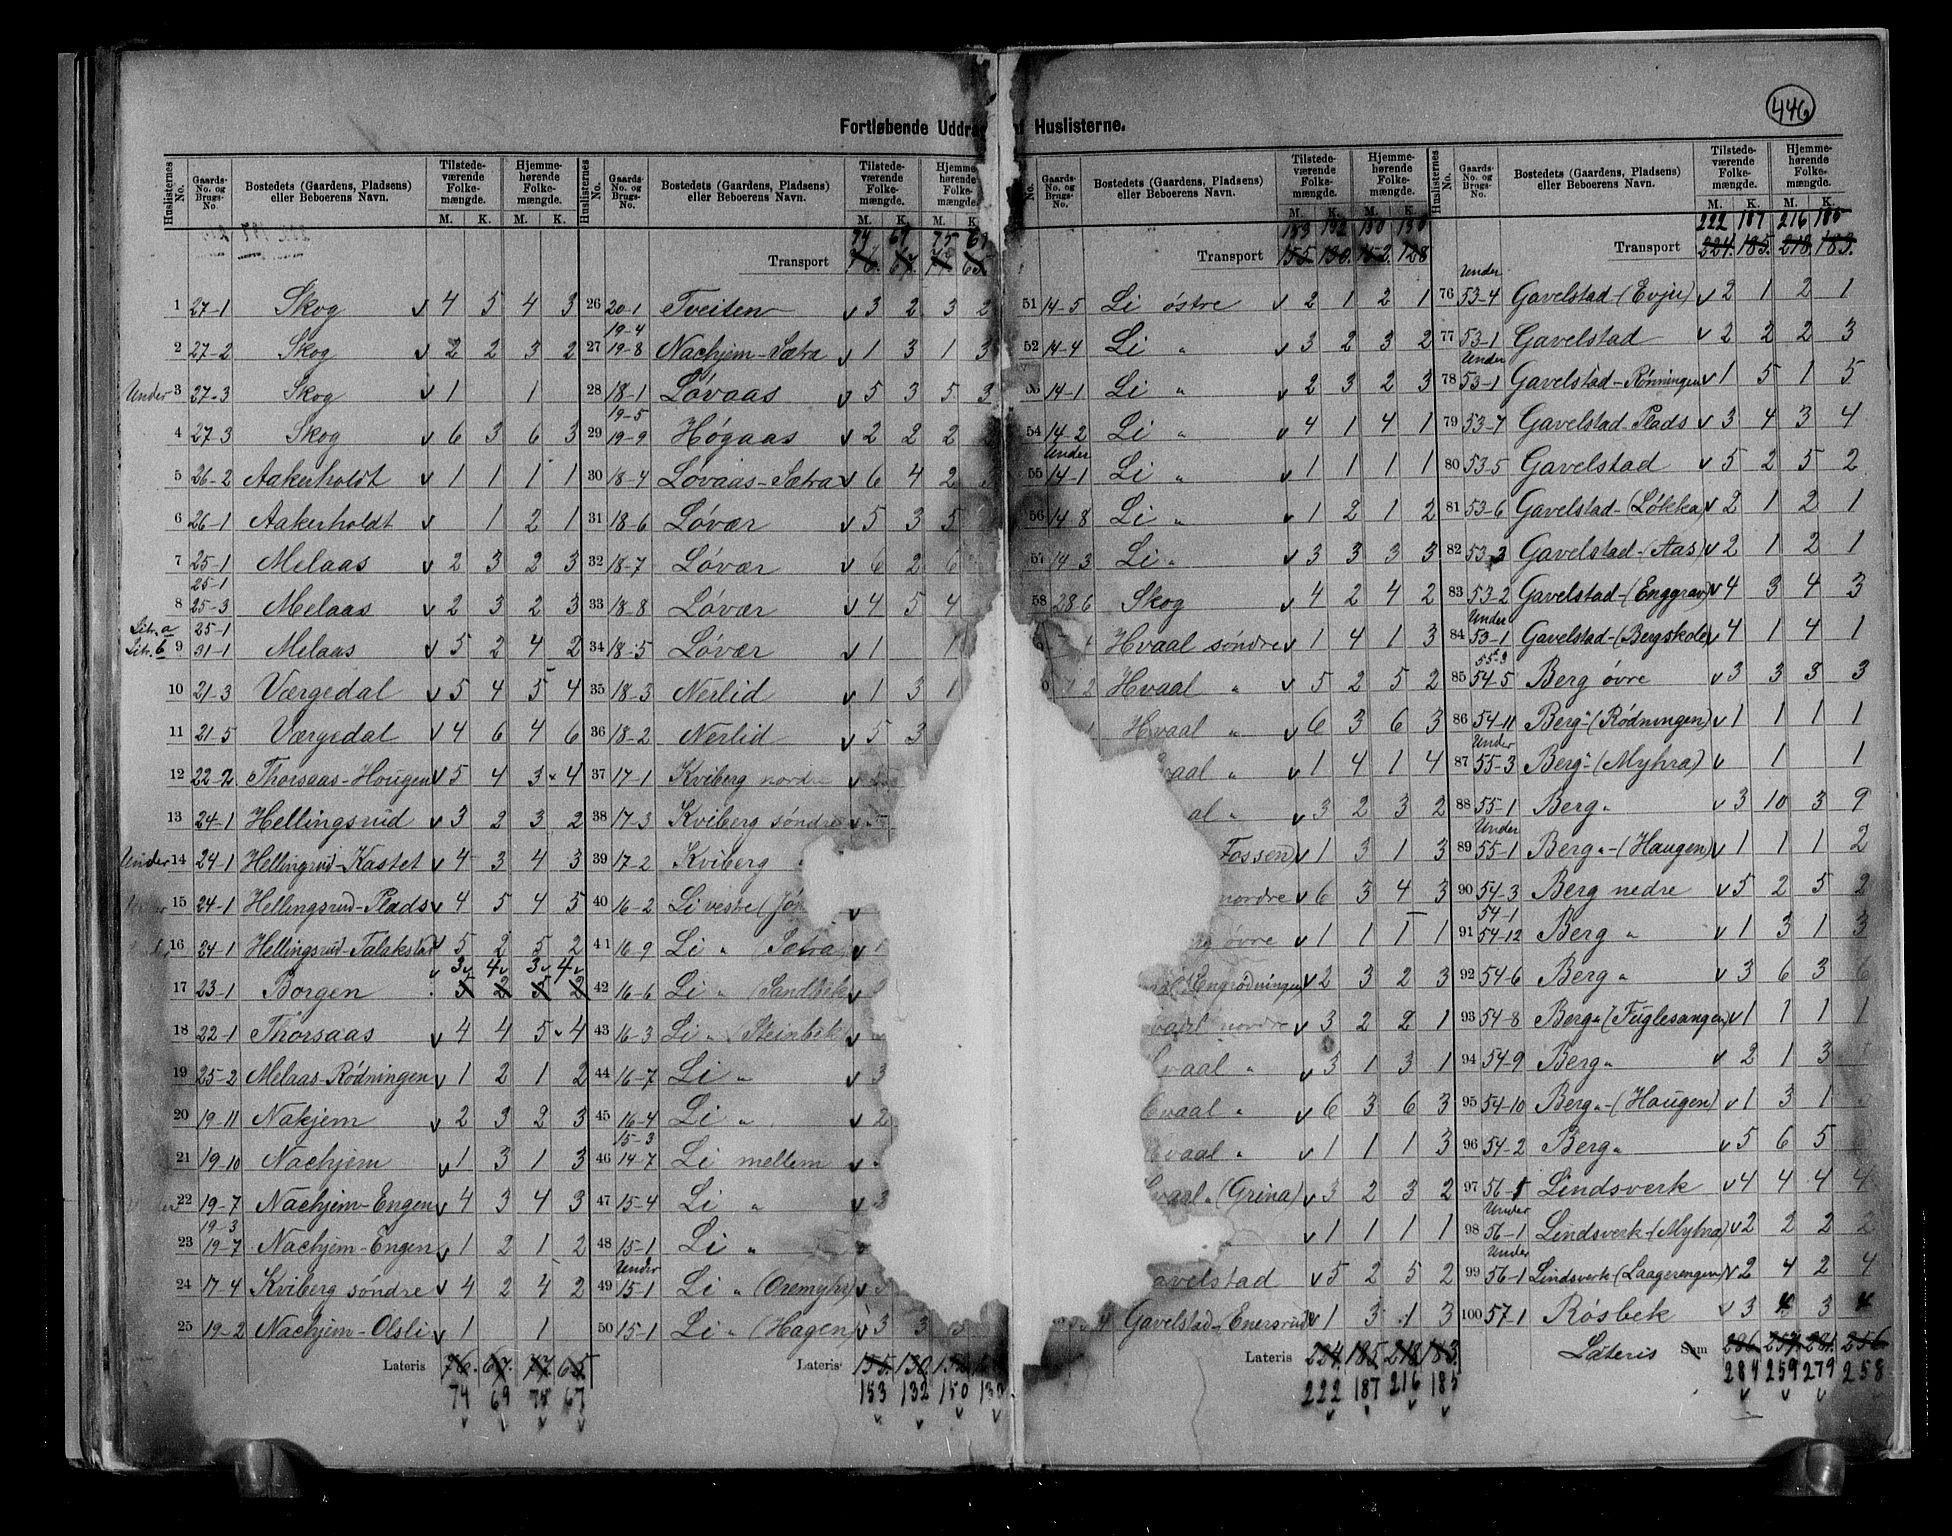 446
Fortløbende Uddra f Huslisterne.
Huslisternes No. Gaards-No. og Brugs-No. Bostedets (Gaardens, Pladsens) eller Beboerens Navn. Tilstedeværende Folkemængde. M. K. Hjemmehørende Folkemængde. M. K.
1 27-1 Skog v 4 5 4 3
2 27-2 Skog v 2 2 3 2
Under 3 27-3 Skog v 1 1
4 27-3 Skog v 6 3 6 3
5 26-2 Aakerholdt v 1 1 1 1
6 26-1 Aakerholdt v 1 2 1
7 25-1 Melaas v 2 3 2 3
8 25-1 25-3 Melaas v 2 3 2 3
Litr. a Litr. b 9 25-1 31-1 Melaas v 5 2 4 2
10 21-3 Værgedal v 5 4 5 4
11 21-5 Værgedal v 4 6 4 6
12 22-2 Thorsaas-Hougen v 5 4 3 4
13 24-1 Hellingsrud v 3 2 3 2
Under 14 24-1 Hellingsrud-Kastet v 4 3 4 3
15 24-1 Hellingsrud-Plads v 4 5 4 5
16 24-1 Hellingsrud-Falakstad v 5 2 5 2
v 3v 4v 3v 4v
17 23-1 Borgen 5 2 5 2
18 22-1 Thorsaas v 4 4 5 4
19 25-2 Melaas-Rødningen v 1 2 1 2
20 19-11 Nakjem v 2 3 2 3
21 19-10 Nachjem v 1 3 1 3
22 19-7 Nachjem-Engen v 4 3 4 3
23 19-3 19-7 Nachjem-Engen v 1 2 1 2
24 17-4 Kviberg søndre v 4 2 4 2
25 19-2 Nachjem-Olsli v 1 1
Lateris 76. 67. 77. 65
74 69 75 67
Huslisternes No. Gaards-No. og Brugs-No. Bostedets (Gaardens, Pladsens) eller Beboerens Navn. Tilstedeværende Folkemængde. M. K. Hjemmehørende Folkemængde. K.
74 69 75
Transport 76. 67. 65
26 20-1 Tveiten v 3 2 3 2
27 19-4 19-8 Nachjem-Sætra v 1 3 1 3
28 18-1 Løvaas v 5 3 5 3
29 19-5 19-9 Høgaas v 2 2 2
30 18-4 Løvaas-Sætra v 6 4 2
31 18-6 Løvær v 5 3 5
32 18-7 Løvær v 6 2 6
33 18-8 Løvær v 4 5 4
34 18-5 Løvær v 1 1
35 18-3 Nerlid v 1 3 1
36 18-2 Nerlid v 5 3
37 17-1 Kviberg nordre v
38 17-3 Kviberg søndre v
39 17-2 Kviberg
40 16-2 Li vestre v
41 16-9 Li " (Sætra) v
42 16-6 Li " (Sandbæk v
43 16-3 Li " Steinbek v
44 16-7 Li " v 3
45 16-4 Li " v 2
46 15-3 14-7 Li mellem v
47 15-4 Li " v 3
48 15-1 Li " v
49 Under 15-1 Li " (Oremyhr) v
50 15-1 Li " (Hagen) v 3 3 3
Lateris 155. 130.
153 132 150
No. Gaards-No. og Brugs-No. Bostedets (Gaardens, Pladsens) eller Beboerens Navn. Tilstedeværende Folkemængde. M. K. Hjemmehørende Folkemængde. M. K.
153 132 150 130
Transport 155. 130. 152. 128
51 14-5 Li østre v 2 1 2 1
52 14-4 Li " v 3 2 3 2
14-1 Li " v 2 3 2 3
54 14-2 Li " v 4 1 4 1
55 Under 14-1 Li " v 1 1 1 1
56 14-8 Li " v 1 2 1 2
57 14-3 Li " v 3 3 3 3
58 28-6 Skog v 4 2 4 2
Hvaal søndre v 1 4 1 3
2 Hvaal " v 5 2 5 2
Hvaal " v 6 3 6 3
aal " v 1 4 1 4
al " v 3 2 3 2
Fossen) v 1 3 1 3
nordre v 6 3 4 3
øvre v 1 1 1 1
(Engrødningen) v 2 3 2 3
vaal nordre v 3 2 2 1
vaal " v 3 1 3 1
vaal " v 6 3 6 3
vaal " v 1 1 1 3
vaal " (Grina) v 3 2 3 2
v 1 1 1 1
avelstad v 5 2 5 2
4 Gavelstad-Enersrud v 1 3 1 3
Lateris 224. 185. 218. 183.
222 187 216 185
Huslisternes No. Gaards-No. og Brugs-No. Bostedets (Gaardens, Pladsens) eller Beboerens Navn. Tilstedeværende Folkemængde. M. K. Hjemmehørende Folkemængde. M. K.
222 187 216 185
Transport 224. 185. 218. 183.
76 Under 53-4 Gavelstad-(Evju) v 2 1 2 1
77 53-1 Gavelstad v 2 2 2 3
78 Under 53-1 Gavelstad-Rønningen v 1 5 1 5
79 53-7 Gavelstad-Plads v 3 4 3 4
80 53-5 Gavelstad v 5 2 5 2
81 53-6 Gavelstad-(Løkka) v 2 1 2 1
82 53-3 Gavelstad-(Aas) v 2 1 2 1
83 53-2 Gavelstad-(Enggrav) v 4 3 4 3
84 Under 53-1 Gavelstad-(Bergskole) v 4 1 4 1
85 55-3 54-5 Berg øvre v 3 3 3 3
86 54-11 Berg "-(Rødningen) v 1 1 1 1
87 Under 55-3 Berg "-(Myhra) v 1 1
88 55-1 Berg " v 3 10 3 9
89 Under 55-1 Berg "-(Haugen) v 1 1 1 2
90 54-3 Berg nedre v 5 2 5 2
91 54-1 54-12 Berg " v 1 3 1 3
92 54-6 Berg " v 3 6 3 6
93 54-8 Berg "-(Fuglesangen) v 1 1 1 1
94 54-9 Berg " v 2 1 3
95 54-10 Berg "-(Haugen) v 1 3 1
96 54-2 Berg " v 5 6 5
97 56-5 Lindsverk v 4 4 4 4
98 Under 56-1 Lindsverk-(Myhra) v 2 2 2 2
99 Under 56-1 Lindsverk-(Laagerengen) v 2 4 2 4
100 57-1 Røsbek v 3 4 3 4
Lateris Sum 286. 257. 281. 256
284 259 279 258